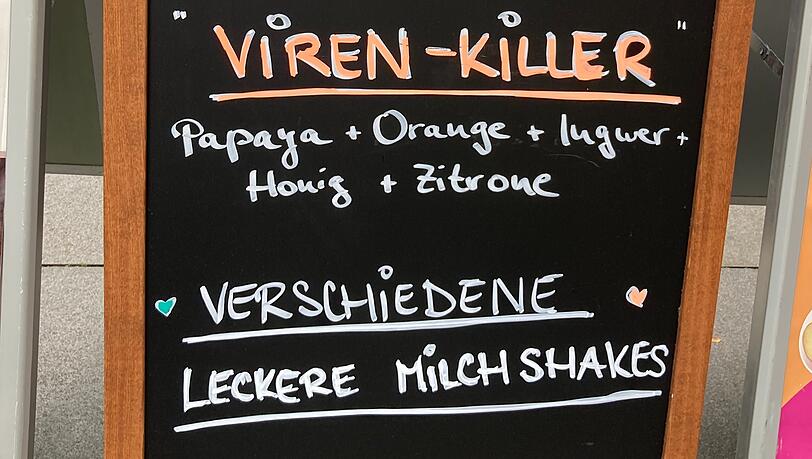 "VIREN-KILLER"
Papaya + Orange + Ingwer +
Honig + Zitrone
VERSCHIEDENE
LECKERE MILCHSHAKES